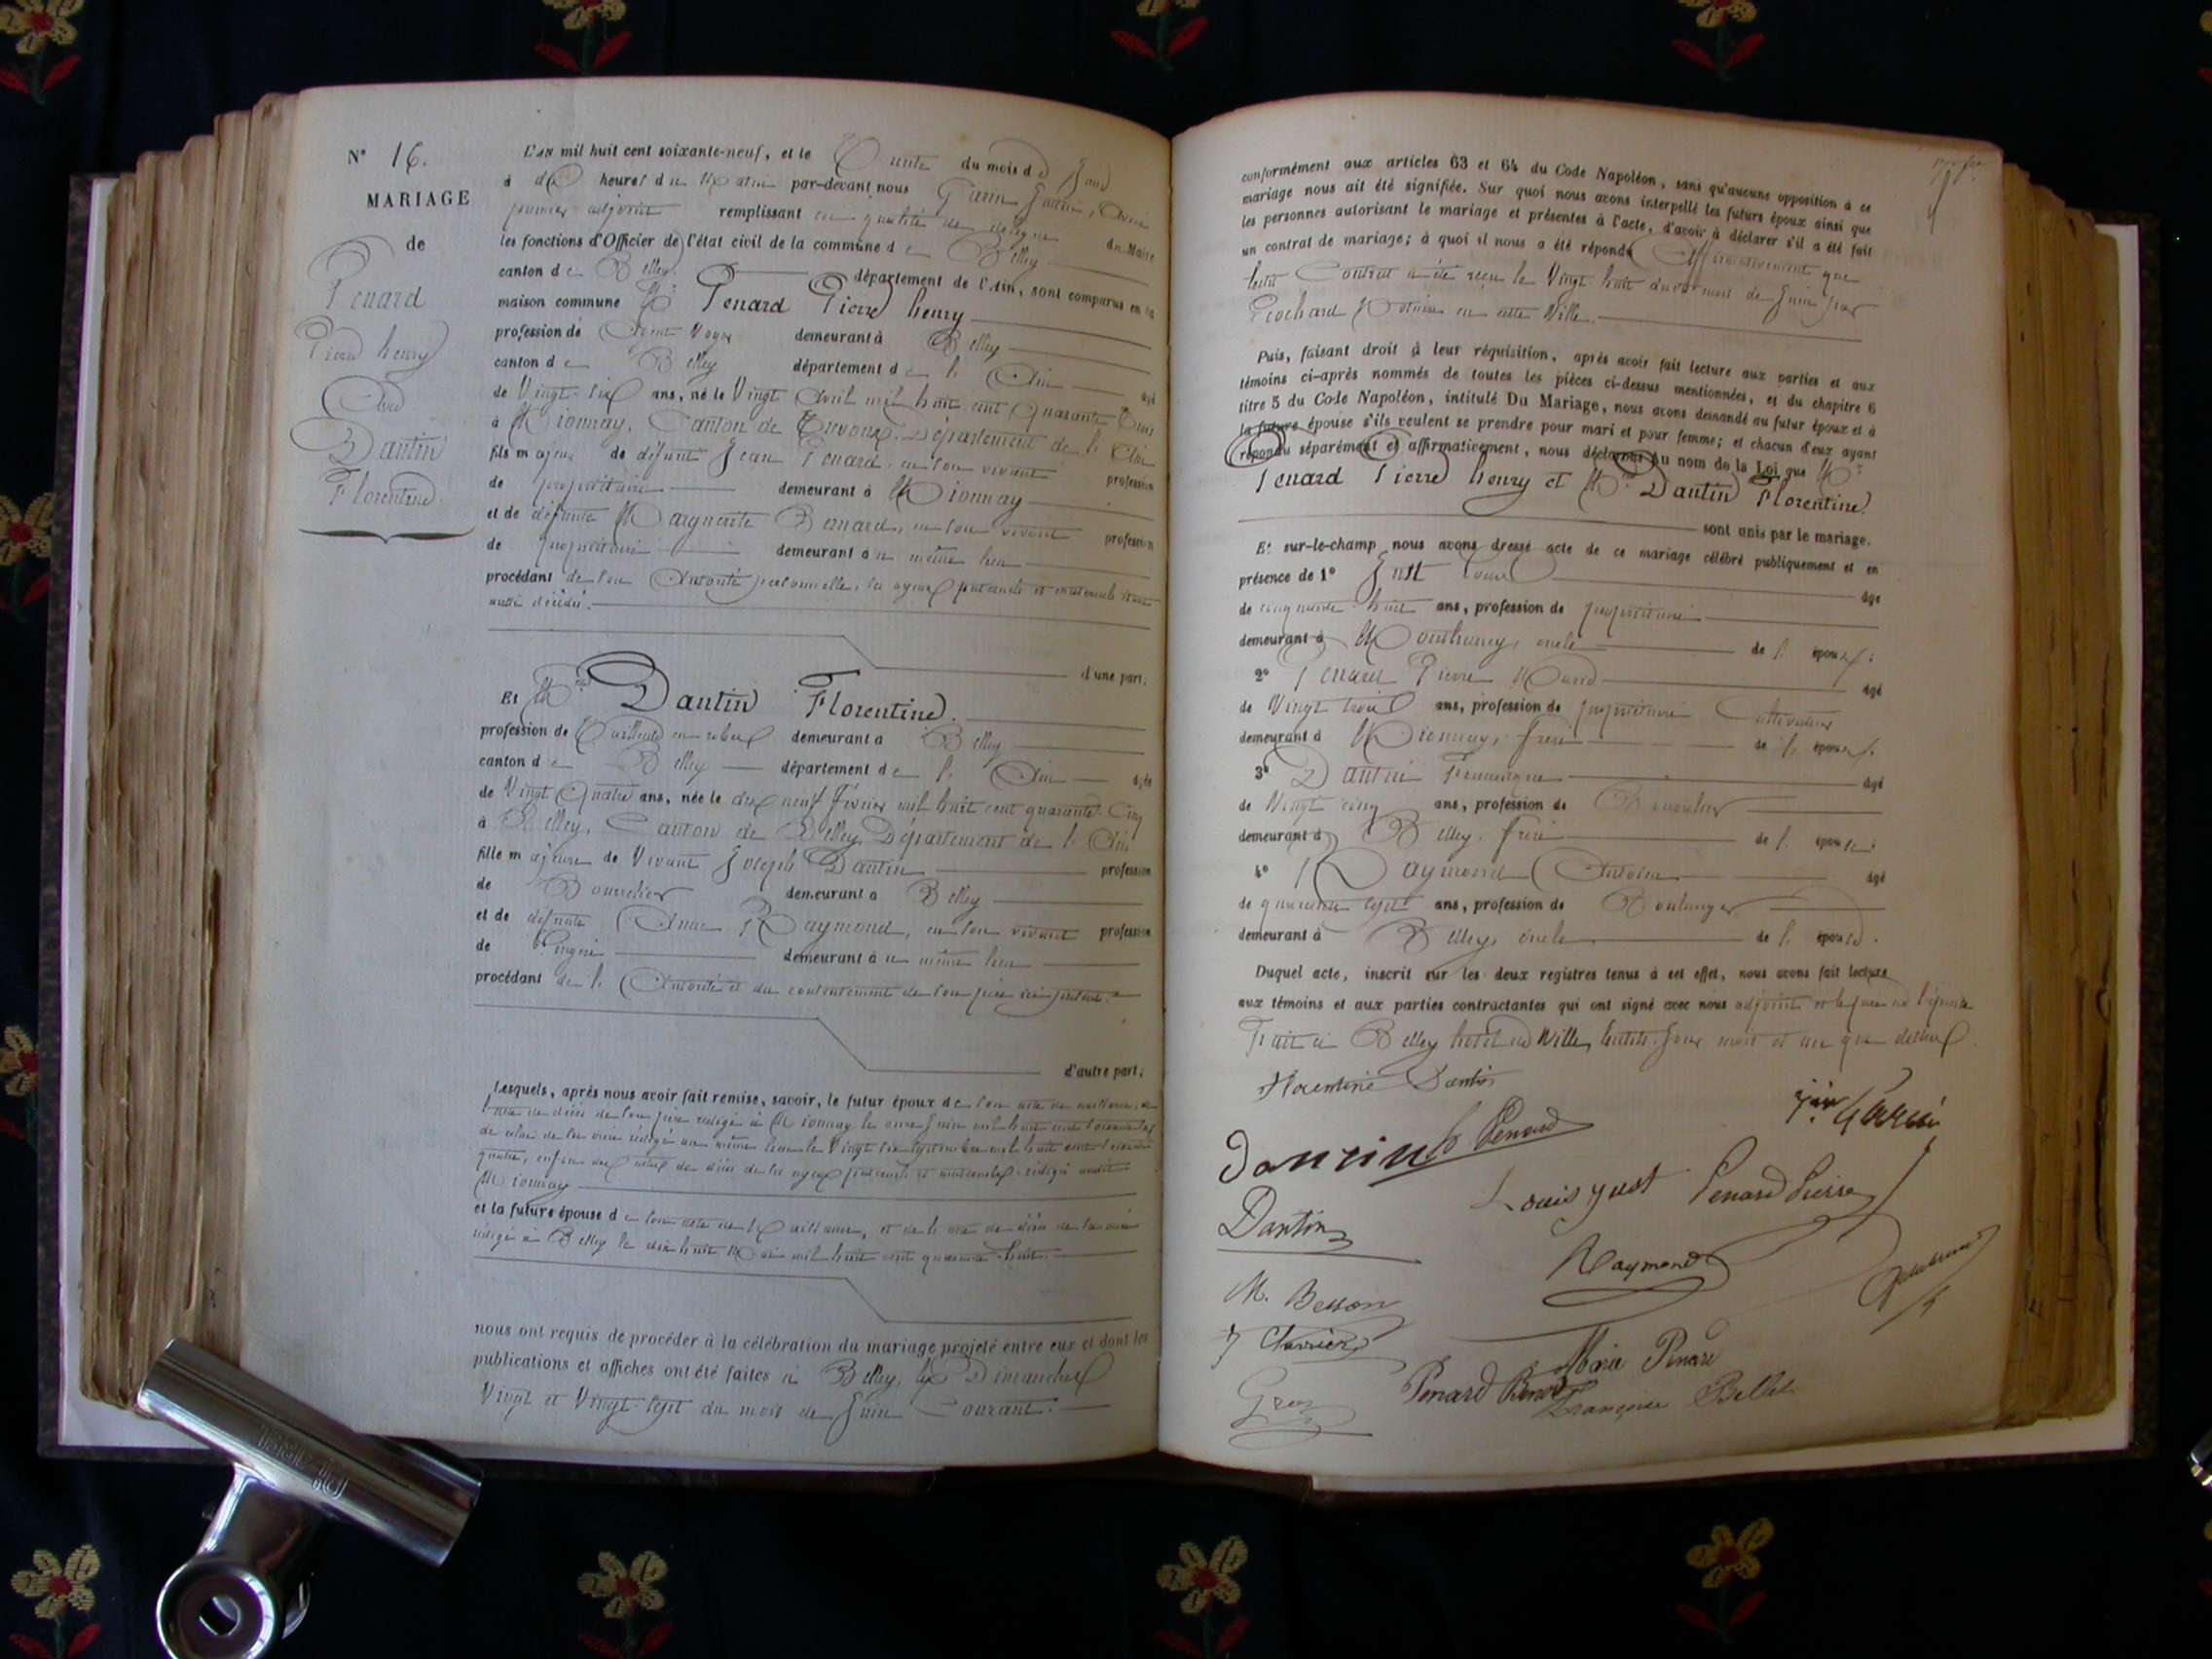 N° 16.
MARIAGE
de
Penard
Pierre henry
Avec
Dantin
Florentine.
L'AN mil huit cent soixante-neuf, et le Trente du mois de Juin
à dix heures du Matin par-devant nous
premier adjoint remplissant en qualité de délégué du Maire
les fonctions d'Officier de l'état civil de la commune de Belley
canton de Belley. département de l'Ain, sont comparus en la
maison commune Mr Penard Pierre henry
profession de Agent Voyer demeurant à Belley
canton de Belley département de l'Ain âgé
de Vingt-six ans, né le Vingt Avril mil huit cent Quarante Trois
à Mionnay, Canton de Trévoux. Département de l'Ain
fils majeur de défunt Jean Penard, en son vivant profession
de propriétaire demeurant à Mionnay
et de défunte Marguerite Bernard, en son vivant profession
de propriétaire demeurant à u même lieu
procédant de son Autorité personnelle, ses ayeux paternels et maternels étant
aussi décédés.
d'une part;
Et Mlle Dantin Florentine.
profession de Tailleuse en robes demeurant à Belley
canton de Belley département de l'Ain âgée
de Vingt Quatre ans, née le dix neuf février mil huit cent quarante-Cinq
à Belley, Canton de Belley, Département de l'Ain
fille majeure de Vivant Joseph Dantin profession
de Bourrelier demeurant à Belley
et de défunte Anne Raymond, en son vivant profession
de Lingère demeurant à u même lieu
procédant de l'Autorité et du consentement de son père ici présent.
d'autre part;
Lesquels, après nous avoir fait remise, savoir, le futur époux de son acte de naissance, de
l'acte de décès de son père rédigé à Mionnay le onze Juin mil huit cent
de celui de sa mère rédigé au même lieu le Vingt six septembre mil huit cent
quatre, enfin des actes de décès de ses ayeux paternels et maternels rédigés audit
Mionnay
et la future épouse de son acte de Naissance, et de l'acte de décès de sa mère
rédigé à Belley le dix huit Mai mil huit cent quarante-huit.
nous ont requis de procéder à la célébration du mariage projeté entre eux et dont les
publications et affiches ont été faites à Belley, les Dimanches
Vingt et Vingt-sept du mois de Juin Courant.
conformément aux articles 63 et 64 du Code Napoléon, sans qu'aucune opposition à ce
mariage nous ait été signifiée. Sur quoi nous avons interpellé les futurs époux ainsi que
les personnes autorisant le mariage et présentes à l'acte, d'avoir à déclarer s'il a été fait
un contrat de mariage; à quoi il nous a été répondu Affirmativement que
ledit Contrat a été reçu le Vingt huit du mois de Juin par
Notaire en cette Ville.
Puis, faisant droit à leur réquisition, après avoir fait lecture aux parties et aux
témoins ci-après nommés de toutes les pièces ci-dessus mentionnées, et du chapitre 6
titre 5 du Code Napoléon, intitulé Du Mariage, nous avons demandé au futur époux et à
la future épouse s'ils veulent se prendre pour mari et pour femme; et chacun d'eux ayant
répondu séparément et affirmativement, nous déclarons au nom de la Loi que Mr
Penard Pierre henry et Mlle Dantin Florentine.
sont unis par le mariage.
Et sur-le-champ nous avons dressé acte de ce mariage célébré publiquement et en
présence de 1° Just Louis âgé
de cinquante-huit ans, profession de propriétaire
demeurant à oncle de l' époux;
2° Penard Pierre Marie âgé
de Vingt trois ans, profession de propriétaire Cultivateur
demeurant à Mionnay, frère de l' époux.
3° Dantin âgé
de Vingt cinq ans, profession de Bourrelier
demeurant à Belley. frère de l' épouse;
4° Raymond Antoine âgé
de quarante sept ans, profession de Boulanger
demeurant à Belley, oncle de l' épouse.
Duquel acte, inscrit sur les deux registres tenus à cet effet, nous avons fait lecture
aux témoins et aux parties contractantes qui ont signé avec nous adjoint et le père de l'épouse
Fait à Belley hôtel de Ville, lesdits Jour mois et an que dessus.
Florentine Dantin
Dantin h Penard
Louis Just Penard Pierre
Dantin
Raymond
M. Besson
Marie Penard
Penard Benoit
Françoise Bellet